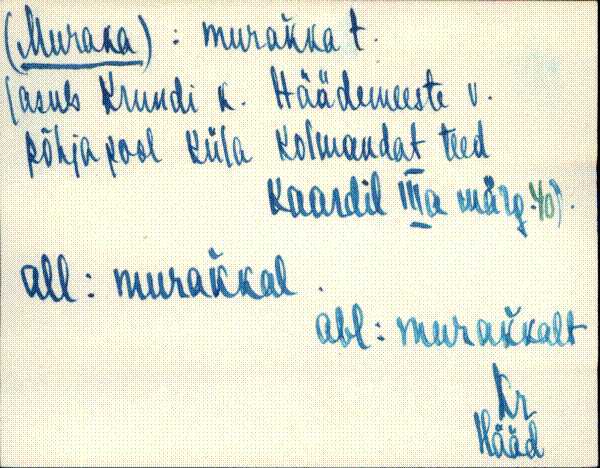 (Muraka) : murak̆ka t.
(asub Krundi k. Häädemeeste v.
põhja pool küla kolmandat teed
kaardil IIIa märg. 40).
all : murak̆kal .
abl : murak̆kalt
Kr
Hääd